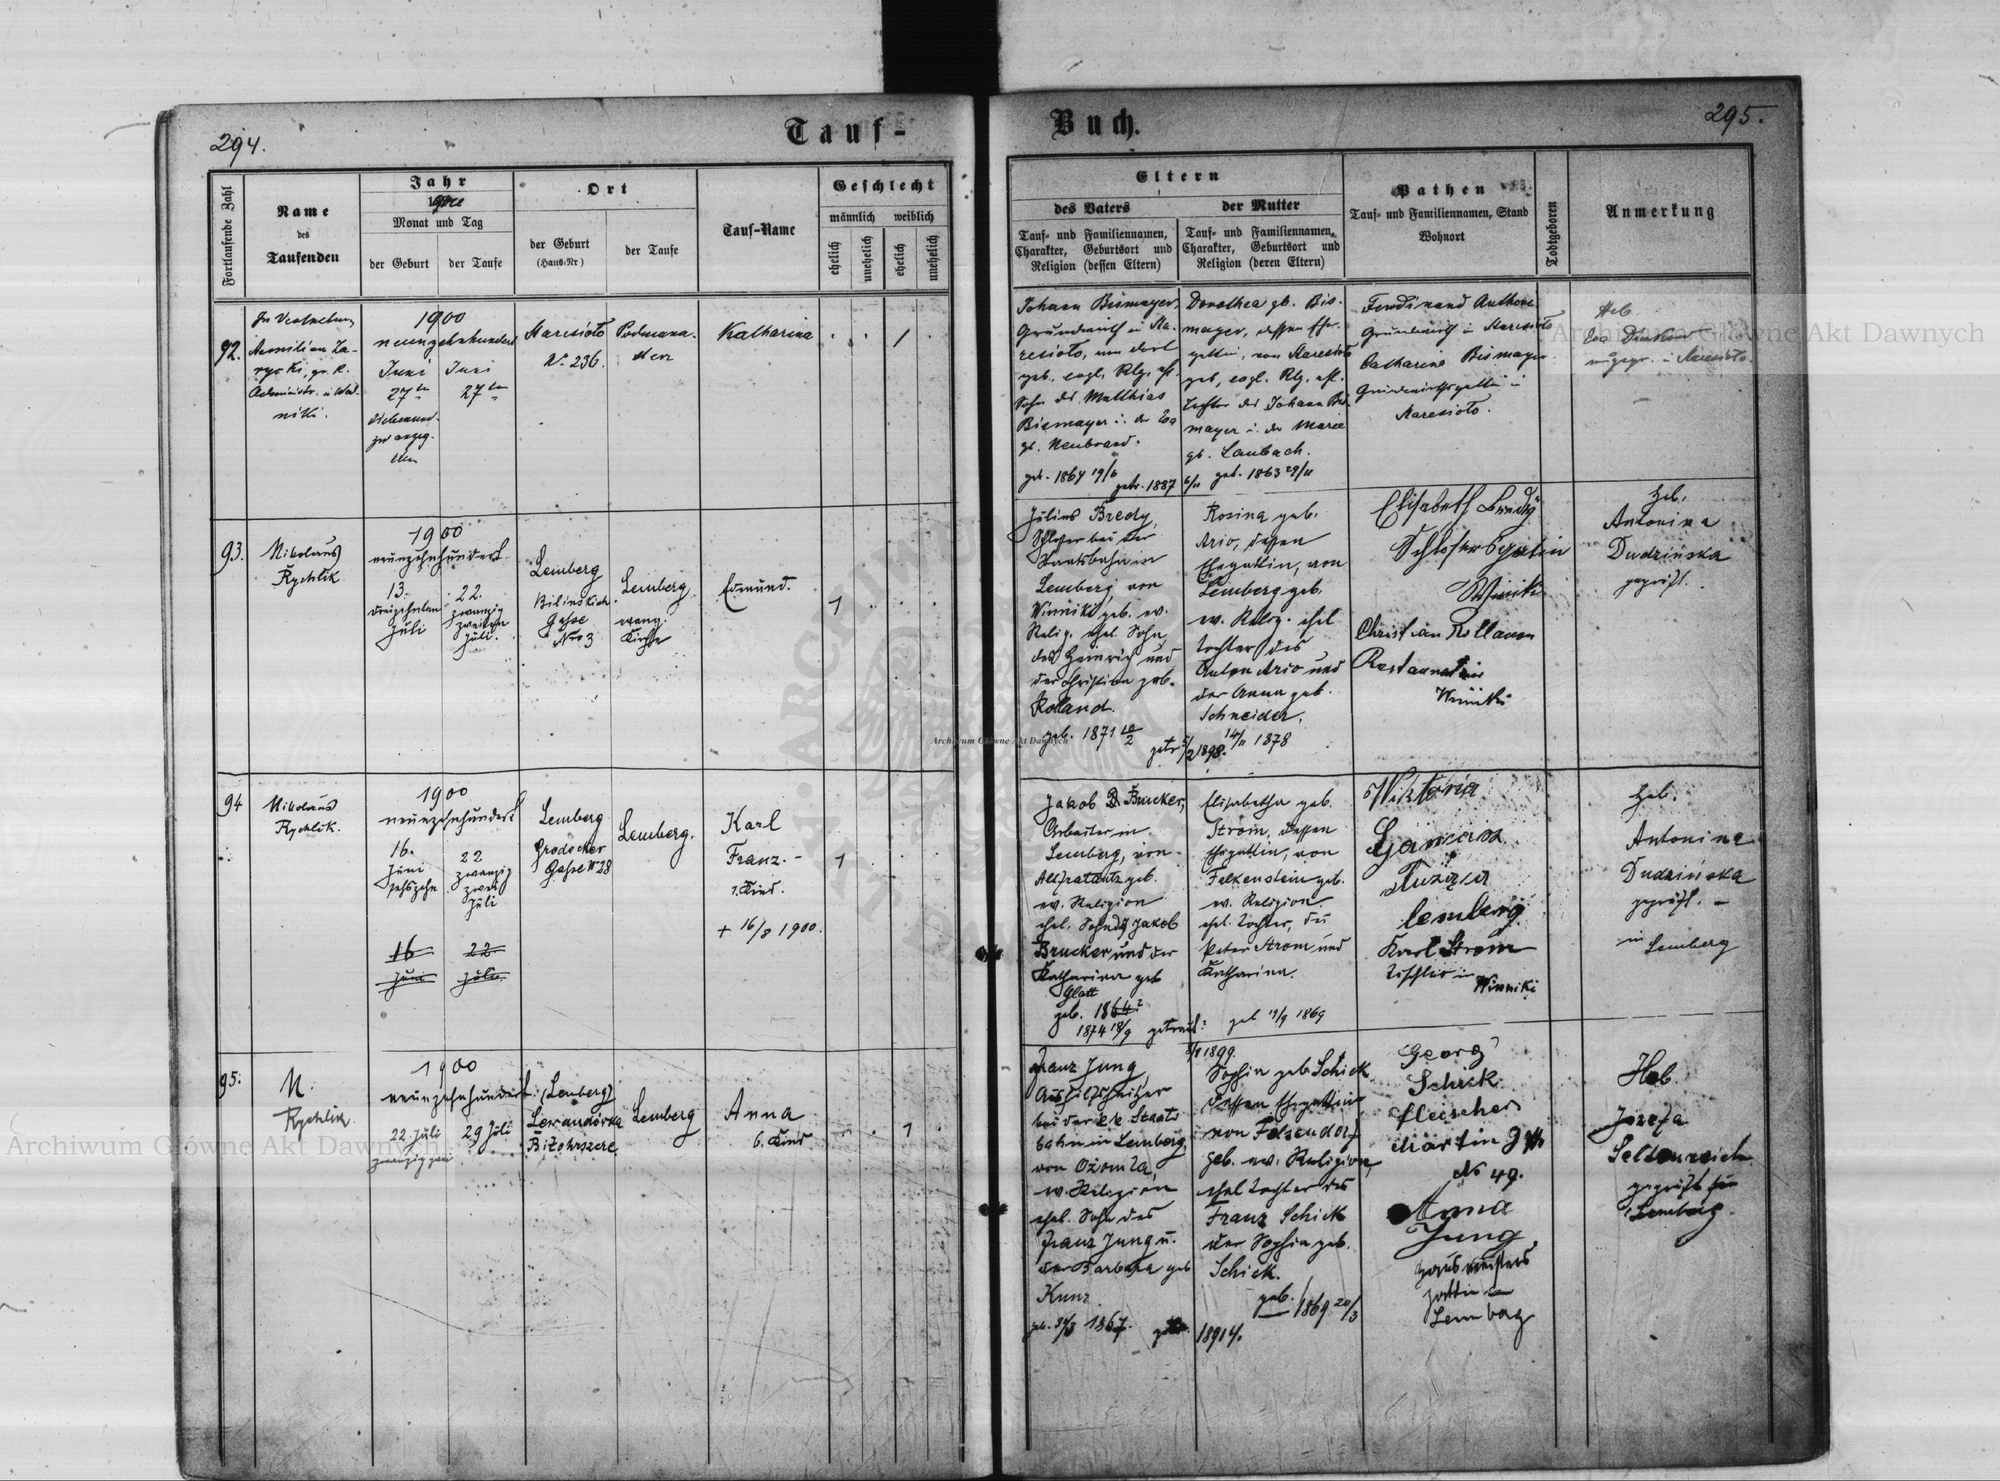 294.
Tauf-
Fortlaufende Zahl
Name
des
Taufenden
Jahr
1900
Monat und Tag
der Geburt
der Taufe
Ort
der Geburt
(Haus-Nr)
der Taufe
Tauf-Name
Geschlecht
männlich
weiblich
ehelich
unehelich
ehelich
unehelich
92.
In Vertretung
Aemilian La-
rycki, gr. k.
Administr. in Win-
niki.
1900
neunzehnhundert
Juni
27ten
Juni
27ten
Maresioto
Nr. 236.
Podmana-
sterz
Katharina
1
93.
Nikolaus
Rychlik
1900
neunzehnhundert
13.
dreizehnten
Juli
22.
zwanzig
zweiten
Juli.
Lemberg
Bilinskich
Gasse
Nro 3
Lemberg
evang.
Kirche
Edmund.
1
94
Nikolaus
Rychlik.
1900
neunzehnhundert
16.
Juni
sechszehn
22
zwanzig
zwei
Juli
16
Juni
22
Juli.
Lemberg
Grodecker
Gasse N 28
Lemberg.
Karl
Franz. -
1. Kind.
+ 16/8 1900.
1
95.
N.
Rychlik.
1900
neunzehnhundert
22 Juli
zwanzig zwei
29 Juli
(Lemberg)
Lewandówka
Bilohrszcze
Lemberg
Anna
6. Kind
1
Buch.
295.
Eltern
des Vaters
Tauf- und Familiennamen,
Charakter, Geburtsort und
Religion (dessen Eltern)
der Mutter
Tauf- und Familiennamen,
Charakter, Geburtsort und
Religion (deren Eltern)
Pathen
Tauf- und Familiennamen, Stand
Wohnort
Todtgeboren
Anmerkung
Johann Bismayer,
Grundwirth in Ma-
resioto, von dort
geb., evgl. Rlg., ehl.
Sohn des Matthias
Bismayer u. der Eva
gb. Neubrand.
geb. 1864 19/6
getr. 1887 6/11
Dorothea gb. Bis-
mayer, dessen Ehe-
gattin, von Maresioto
geb., evgl. Rlg. ehl.
Tochter des Johann Bis-
mayer u. der Marie
gb. Laubach.
geb. 1863 29/11
Ferdinand
Grundwirth in Maresioto
Catharine Bismayer
Grundwirthsgattin in
Maresioto.
Heb.
in Maresioto.
Julius Bredy,
Schlosser bei der
Staatsbahn in
Lemberg, von
Winniki geb. ev.
Relig. ehel. Sohn
des Heinrich und
der Christina geb.
Roland.
geb. 1871 10/2
getr. 5/2 1898.
Rosina geb.
Ario, dessen
Ehegattin, von
Lemberg geb.
ev. Relig. ehel
Tochter des
Anton Ario und
der Anna geb.
Schneider.
14/11 1878
Elisabeth Bredy
Schlossersgattin
Winniki
Christian Rollauer
Restaurateur
Winniki
Heb.
Antonina
Dudzińska
geprüft.
Jakob Brucker,
Arbeiter in
Lemberg, von
geb.
ev. Religion
ehel. Sohn des Jakob
Brucker und der
Katharina geb
Glatt
geb. 1864
1874 18/9
getraut:
8/8 1899.
Elisabetha geb.
Strom, dessen
Ehegattin, von
Falkenstein geb.
ev. Religion.
ehel. Tochter, des
Peter Strom und
Katharina.
geb 19/9 1869
Wiktoria
Lemberg
Karl Strom
Tischler in
Winniki
Heb.
Antonine
Dudzińska
geprüft. -
in Lemberg
Franz Jung
Aushilfsheizer
bei der k.k. Staats
bahn in Lemberg,
von Ożomla,
ev. Religion
ehel. Sohn des
Franz Jung u.
der Barbara geb
Kunz
1867.
Sophia geb Schick
dessen Ehegattin
von Felsendorf
geb. ev. Religion,
ehel Tochter des
Franz Schick
der Sophia geb.
Schick.
geb. 1869 20/3
Georg
Schick
Fleischer
Martin G
N 49.
Anna
Jung,
Hausmeisters
gattin in
Lemberg
Heb.
Józefa
Seltenreich
geprüft in
Lemberg.
Archiwum Główne Akt Dawnych
Archiwum Główne Akt Dawnych
Archiwum Główne Akt Dawnych